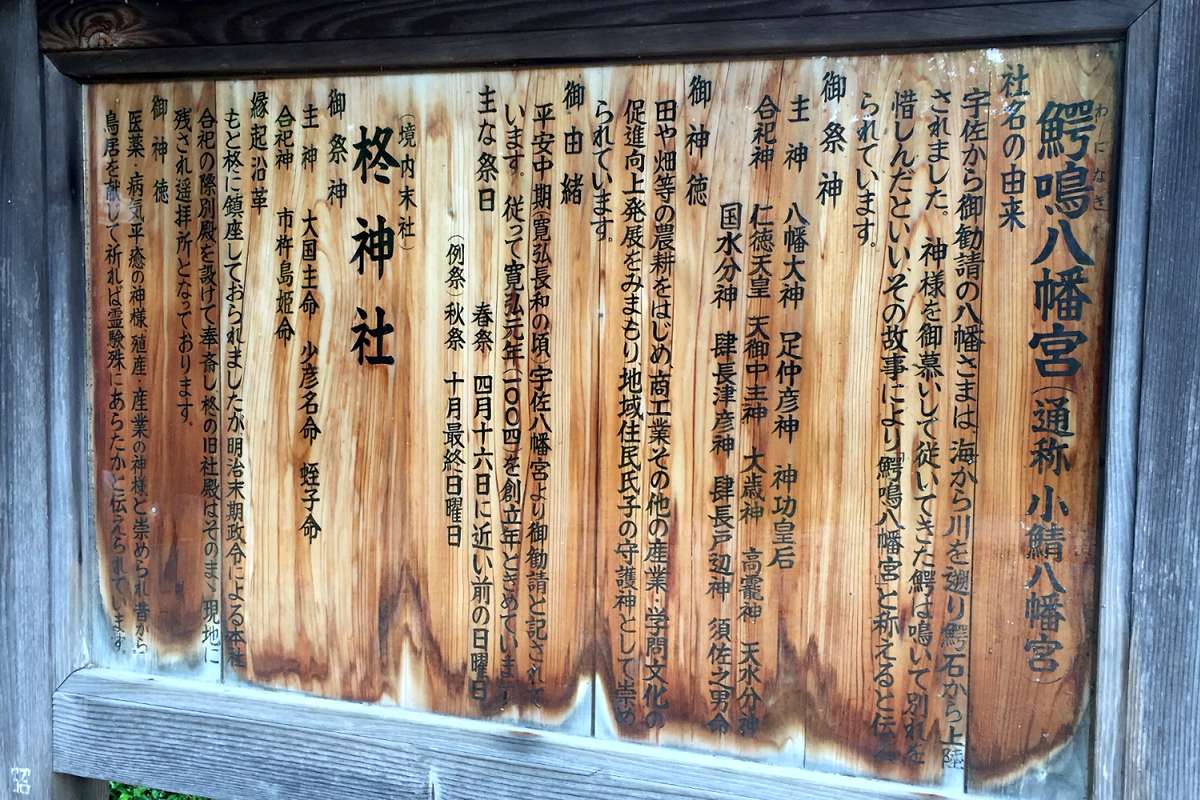 鰐鳴八幡宮（通称 小鯖八幡宮）
わになき
社名の由来
宇佐から御勧請の八幡さまは、海から川を遡り鰐石から上陸
されました。神様を御慕いして従いてきた鰐は鳴いて別れを
惜しんだといいその故事により「鰐鳴八幡宮」と称えると伝え
られています。
御祭神
主神 八幡大神 足仲彦神 神功皇后
合祀神 仁徳天皇 天御中主神 大歳神 高龗神 天水分神
国水分神 肆長津彦神 肆長戸辺神 須佐之男命
御神徳
田や畑等の農耕をはじめ、商工業その他の産業・学問文化の
促進向上発展をみまもり地域住民氏子の守護神として崇め
られています。
御由緒
平安中期(寛弘長和の頃)宇佐八幡宮より御勧請と記されて
います。従って寛弘元年(一〇〇四)を創立年ときめています
主な祭日 春祭 四月十六日に近い前の日曜日
（例祭）秋祭 十月最終日曜日
（境内末社）
柊神社
御祭神
主神 大国主命 少彦名命 蛭子命
合祀神 市杵島姫命
縁起沿革
もと柊に鎮座しておられましたが明治末期政令による本社
合祀の際別殿を設けて奉斎し柊の旧社殿はそのまゝ現地に
残され遥拝所となっております。
御神徳
医薬・病気平癒の神様、殖産・産業の神様と崇められ昔から
鳥居を献じて祈れば霊験殊にあらたかと伝えられています